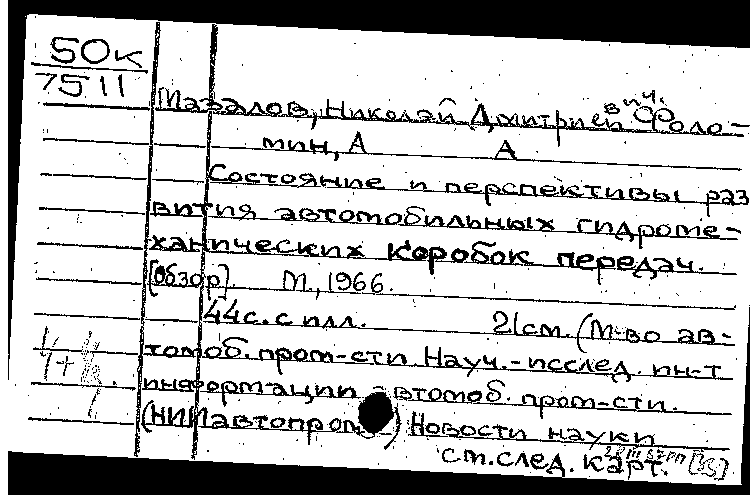 50к
7511
Мазалов, Николай Дмитриевич. Фоло-
мин, А А
Состояние и перспективы раз
вития автомобильных гидроме-
ханических коробок передач.
[Обзор] М., 1966.
44с. с илл. 21см. (М-во ав-
томоб. пром-сти Науч.-исслед. ин-т
информации автомоб. пром-сти.
(НИИавтопром) Новости науки
см. след. карт.